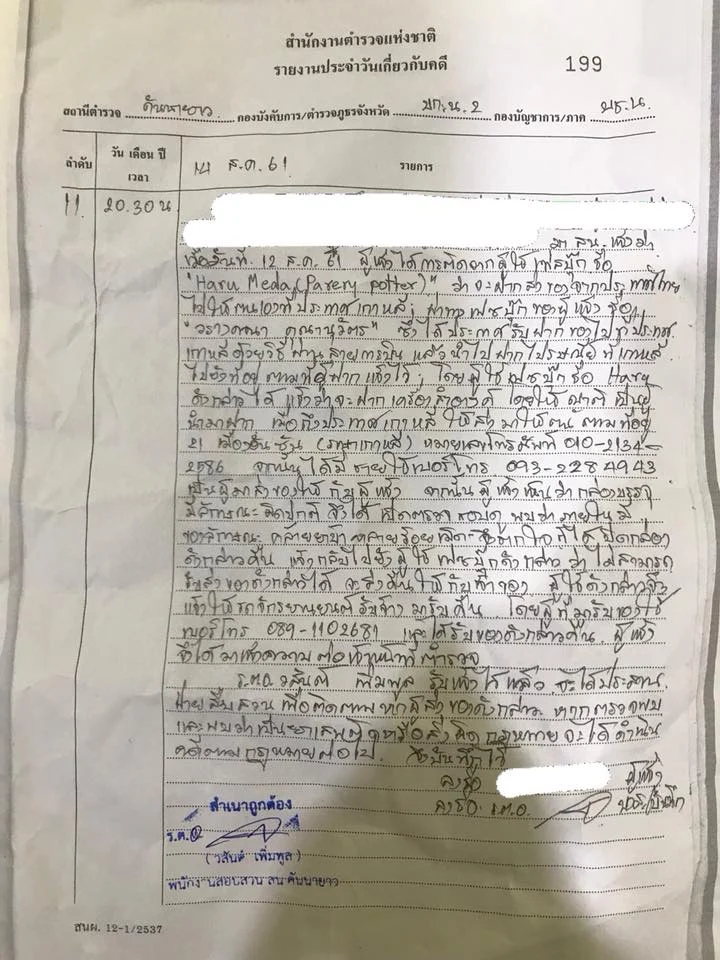 สำนักงานตำรวจแห่งชาติ
รายงานประจำวันเกี่ยวกับคดี
199
สถานีตำรวจ คันนายาว กองบังคับการ/ตำรวจภูธรจังหวัด บก.น.2 กองบัญชาการ/ภาค บช.น.
ลำดับ วัน เดือน ปี เวลา 14 ส.ค.61 รายการ
11. 20.30 น.
มา สน. แจ้งว่า
เมื่อวันที่ 12 ส.ค. 61 ผู้แจ้งได้การติดต่อจากผู้ใช้เฟสบุ๊ก ชื่อ
"Haru Meda (Parery potter)" ว่าจะฝากส่งของจากประเทศไทย
ไปให้ตนเองที่ประเทศเกาหลี; ผ่านทางเฟซบุ๊กของผู้แจ้ง ชื่อ
"วรางคณา คุณานุวัตร" ซึ่งได้ประกาศรับฝากของไปประเทศ
เกาหลีด้วยวิธีผ่านสายการบิน แล้วนำไปฝากไปรษณีย์ที่เกาหลี
ไปยังที่อยู่ตามที่ผู้ฝากแจ้งไว้; โดยผู้ใช้เฟซบุ๊กชื่อ Haru
ดังกล่าวได้แจ้งว่าจะฝากเครื่องสำอางค์ โดยให้ญาติเป็นผู้
นำมาฝาก เมื่อถึงประเทศเกาหลี ให้ส่งมาให้ตน ตามที่อยู่
21 เมืองอันซัน (เกาหลี) หมายเลขโทรศัพท์ 010-2134-
2586 จากนั้นได้มีชายใช้เบอร์โทร 093-2284943
เป็นผู้มาส่งของให้กับผู้แจ้ง จากนั้นผู้แจ้งเห็นว่ากล่องบรรจุ
มีลักษณะผิดปกติ จึงได้เปิดตรวจสอบดู พบว่าภายในมี
ของลักษณะคล้ายยาบ้าหลายร้อยเม็ด จึงตกใจก็ได้ปิดกล่อง
ดังกล่าวคืน แจ้งกลับไปยังผู้ใช้เฟซบุ๊กดังกล่าว ว่าไม่สามารถ
รับส่งของดังกล่าวได้ จะส่งคืนให้กับเจ้าของ ผู้ใช้ดังกล่าวจึง
แจ้งให้รถจักรยานยนต์รับจ้างมารับคืน โดยผู้ที่มารับของใช้
เบอร์โทร 089-1102681 และได้รับของดังกล่าวคืน ผู้แจ้ง
จึงได้มาแจ้งความต่อเจ้าหน้าที่ตำรวจ
ร.ต.อ.วสันต์ เพิ่มพูล รับแจ้งไว้แล้ว จะได้ประสาน
ฝ่ายสืบสวน เพื่อติดตามหาผู้ส่งของดังกล่าว หากตรวจพบ
และพบว่าเป็นยาเสพติดหรือสิ่งผิดกฎหมาย จะได้ดำเนิน
คดีตามกฎหมายต่อไป. จึงบันทึกไว้
ลงชื่อ ผู้แจ้ง
ลงชื่อ ร.ต.อ.
สำเนาถูกต้อง
ร.ต.อ.
(วสันต์ เพิ่มพูล)
พนักงานสอบสวน สน.คันนายาว
สนผ. 12-1/2537